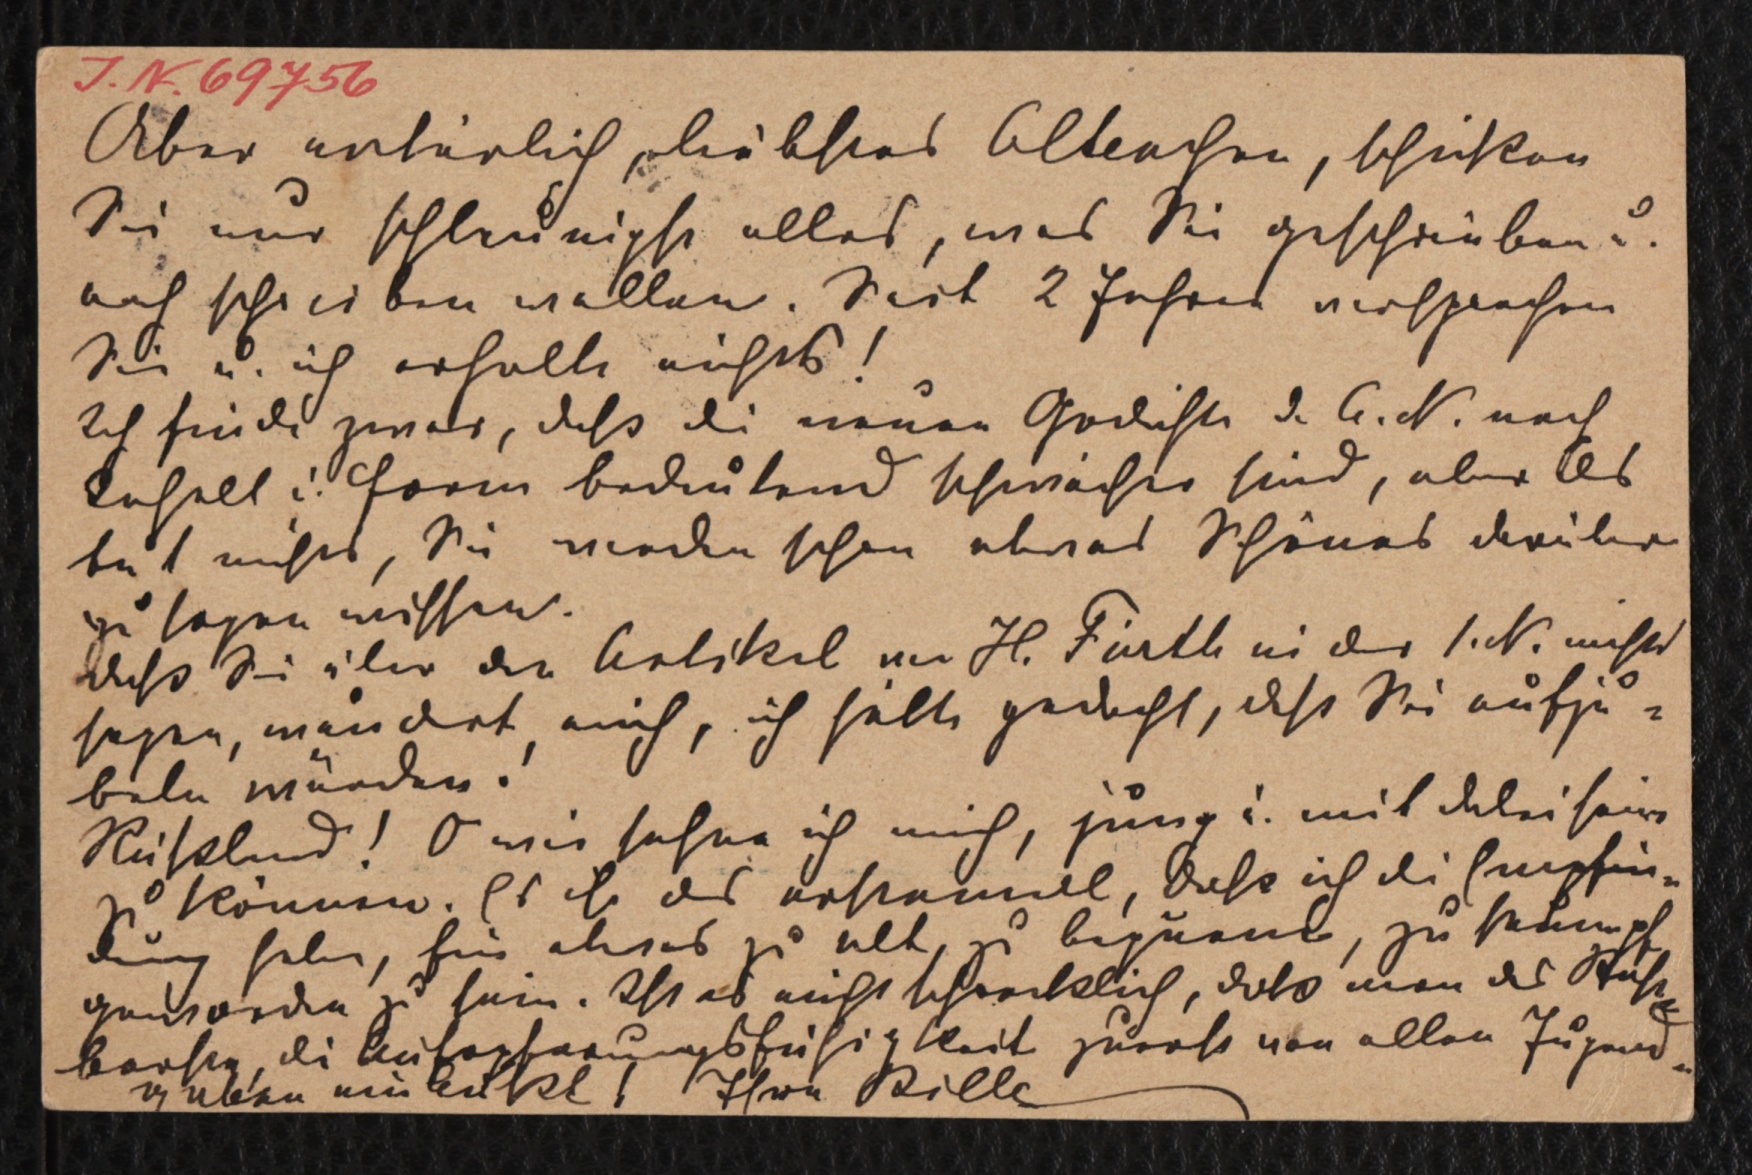 J. N. 69756
Aber natürlich, liebstes Altenchen, schicken
Sie nur schleunigst alles, was Sie geschrieben u.
noch schreiben wollen. Seit 2 Jahren versprechen
Sie u. ich erhalte nichts!
Ich finde zwar, daß die neuen Gedichte d. A. N. nach
Inhalt u. Form bedeutend schwächer sind, aber das
tut nichts, Sie werden schon etwas Schönes darüber
zu sagen wissen.
Daß Sie über den Artikel von H. Fürth in der N. nichts
sagen, wundert mich, ich hätte gedacht, daß Sie aufju-
beln würden!
Rußland! O wie sehne ich mich, jung u. mit dabei sein
zu können. Es ist das erstemal, daß ich die Empfin-
dung habe, für etwas zu alt, zu bequem, zu stumpf
geworden zu sein. Ist es nicht schrecklich, daß man das Kost-
barste, die Aufopferungsfähigkeit zuerst von allen Jugend-
gaben einbüßt! Ihre